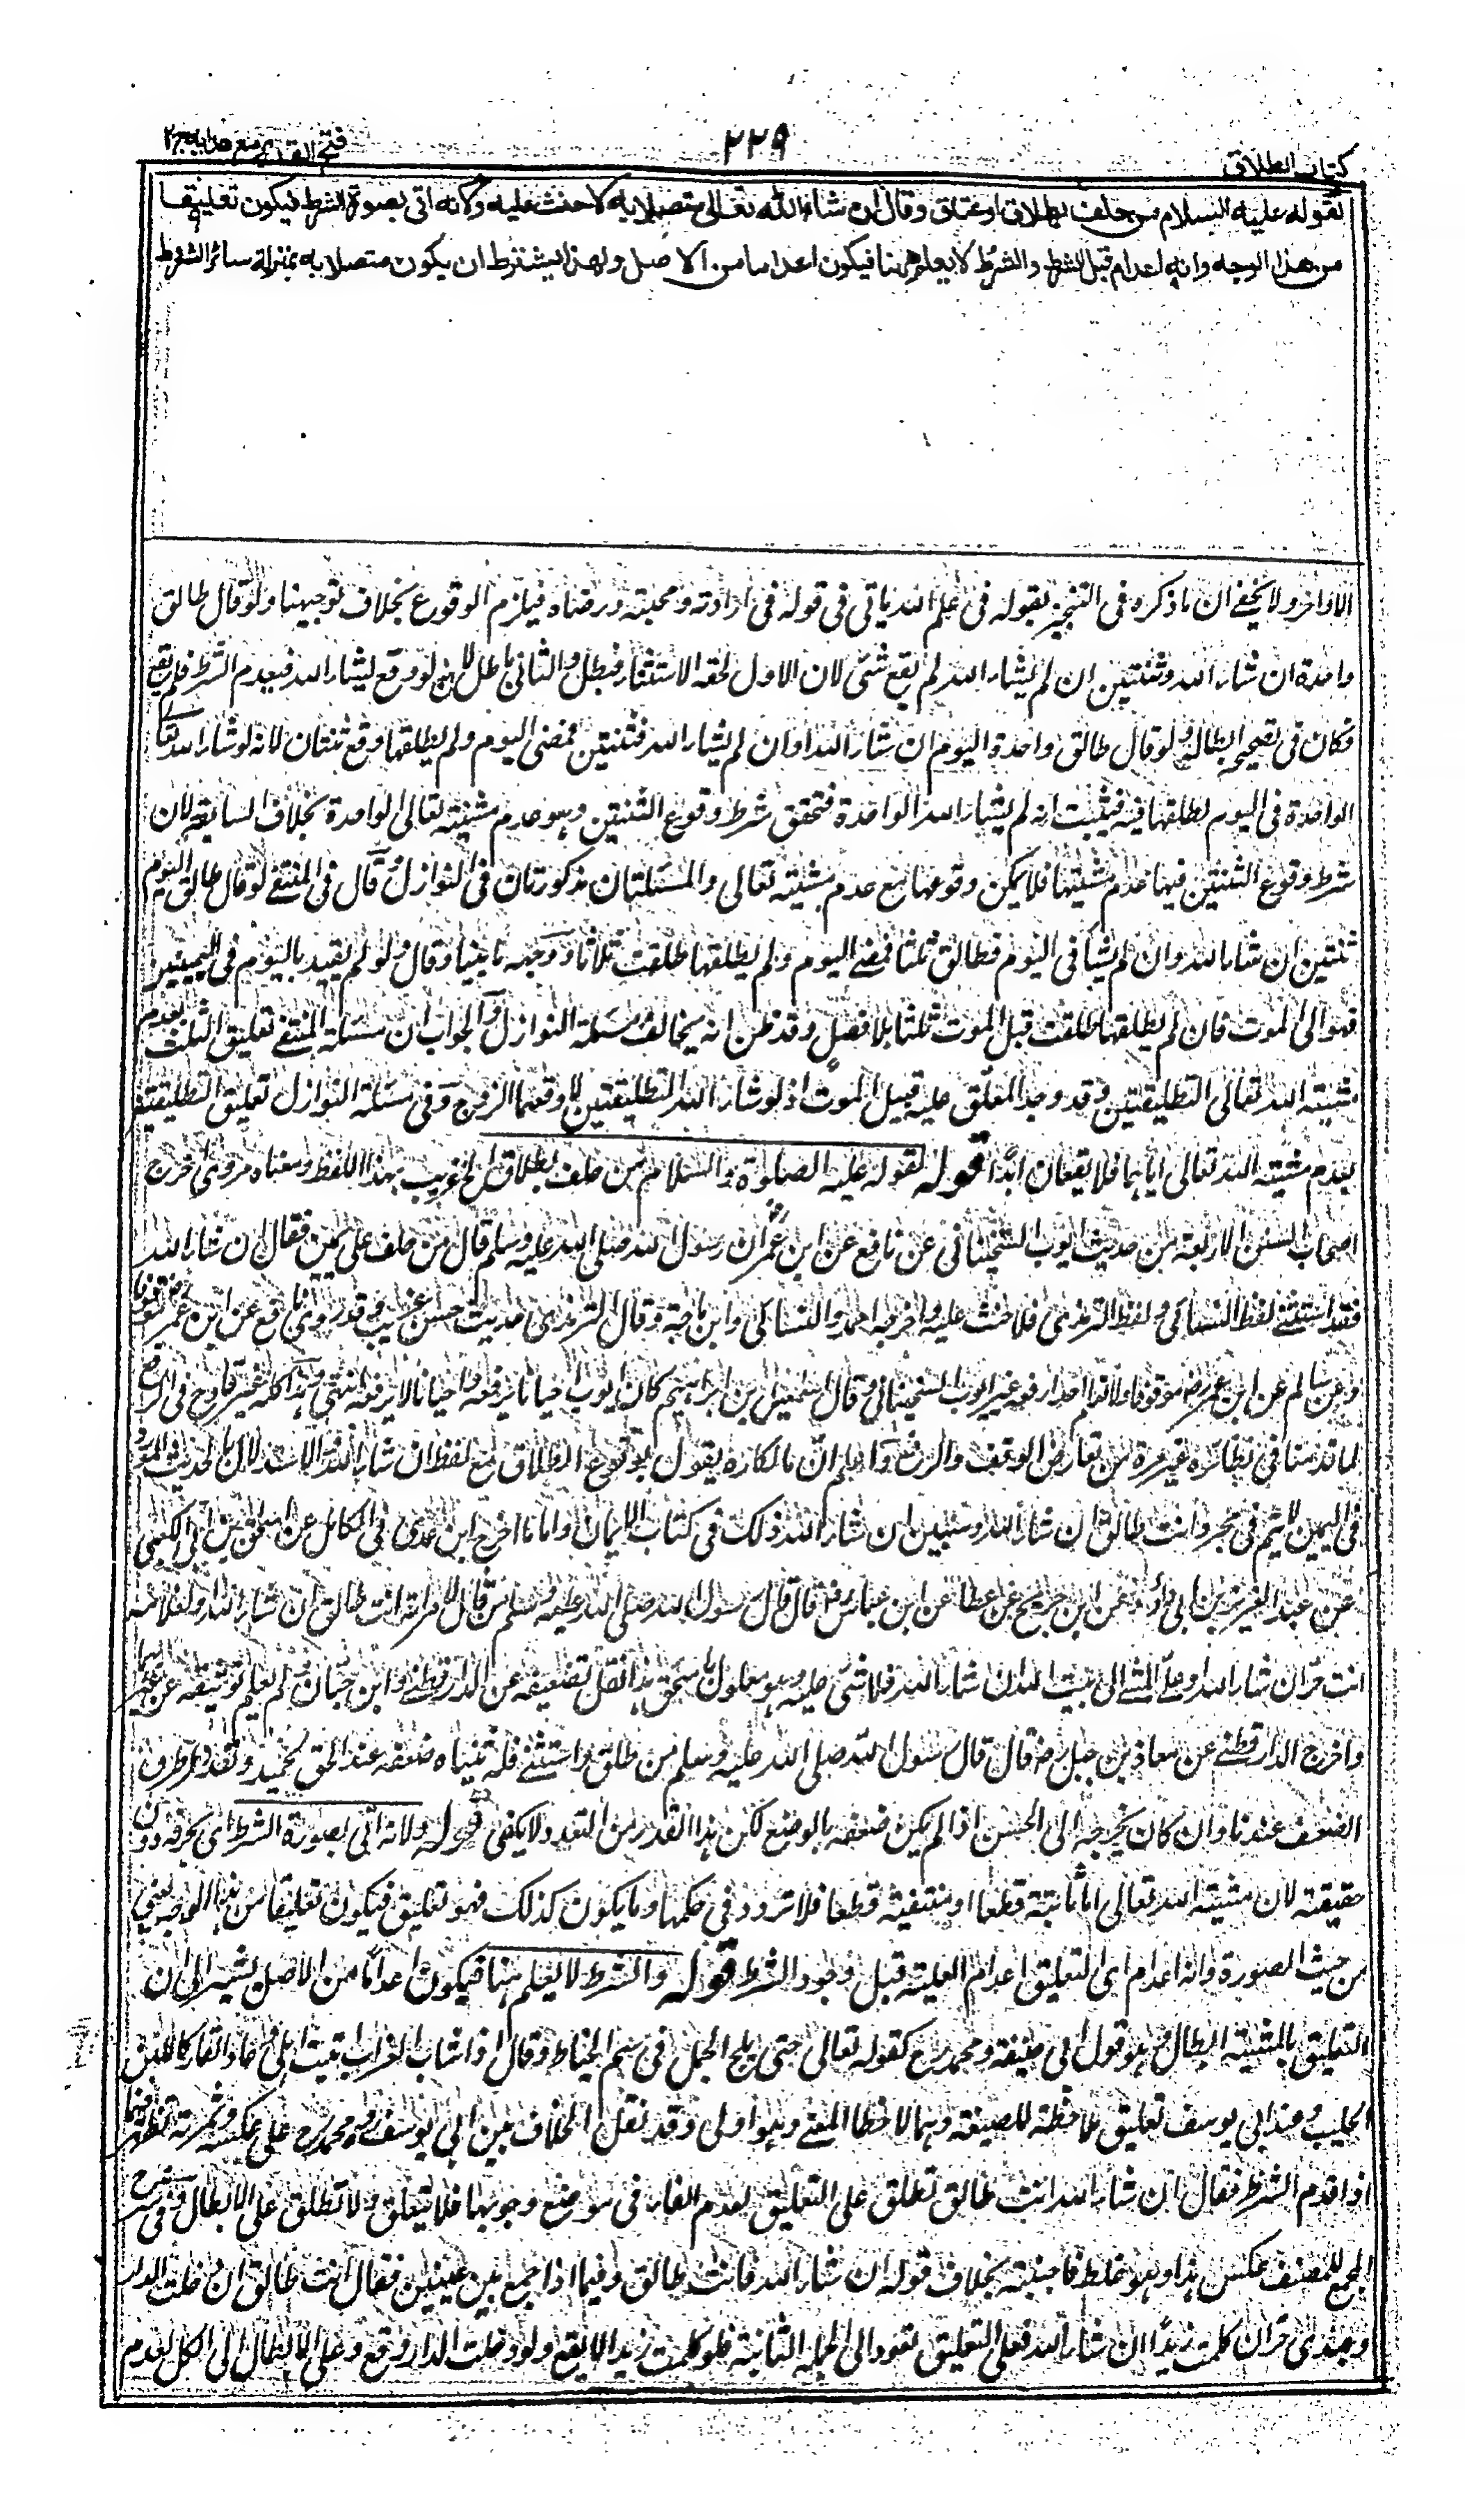 كتاب الطلاق
٢٢٩
فتح القدير مع هدايه ج٢
لقوله عليه السلام من حلف بطلاق او عتاق وقال ان شاء الله تعالى متصلا به لا حنث عليه ولانه اتى بصورة الشرط فيكون تعليقا
من هذا الوجه وانه اعدام قبل الشرط والشرط لا يعلم ههنا فيكون اعداما من الاصل ولهذا يشترط ان يكون متصلا به بمنزلة سائر الشروط
الاواخر ولا يخفے ان ما ذكره فى التنجيز بقوله فى علم الله ياتى فى قوله فى ارادته ومحبته ورضاه فيلزم الوقوع بخلاف توجيهنا ولو قال طالق
واحدة ان شاء الله وثنتين ان لم يشاء الله لم يقع شئ لان الاول لحقه الاستثناء فبطل والثانى باطل لانه لو وقع لشاء الله فيعدم الشرط فلم يقع
فكان فى تصحيحه ابطاله ولو قال طالق واحدة اليوم ان شاء الله او ان لم يشاء الله فثنتين فمضى اليوم ولم يطلقها وقع ثنتان لانه لو شاء الله تعا
الواحدة فى اليوم لطلقها فيه فيثبت انه لم يشاء الله الواحدة فتحقق شرط وقوع الثنتين وهو عدم مشيته تعالى الواحدة بخلاف السابقة لان
شرط وقوع الثنتين فيها عدم مشيتها فلا يمكن وقوعها مع عدم مشيته تعالى والمسئلتان مذكورتان فى النوازل قال فى المنتقے لو قال طالق اليوم
ثنتين ان شاء الله وان لم يشأ فى اليوم فطالق ثلثا فمضے اليوم ولم يطلقها طلقت ثلاثا ووجهه ما بينا وقال ولو لم يقيد باليوم فى اليمينين
فهو الى الموت فان لم يطلقها طلقت قبل الموت ثلثا بلا فصل وقد ظن انه يخالف مسئلة النوازل والجواب ان مسئلة المنتقے تعليق الثلث بعدم
مشيته الله تعالى التطليقتين وقد وجد المعلق عليه قبيل الموت اذ لو شاء الله التطليقتين لاوقعهما الزوج وفى مسئلة النوازل تعليق التطليقتين
بعدم مشيته الله تعالى اياهما فلا يقعان ابدًا قوله لقوله عليه الصلوة والسلام من حلف بطلاق الخ غريب بهذا اللفظ ومعناه مروى اخرج
اصحاب السنن الاربعة من حديث ايوب السختيانى عن نافع عن ابن عمر ان رسول الله صلى الله عليه وسلم قال من حلف على يمين فقال ان شاء الله
فقد استثنے لفظ النسائى ولفظ الترمذى فلا حنث عليه واخرجه احمد والنسائى وابن ماجة وقال الترمذى حديث حسن غريب وقد روى نافع عن ابن عمر موقوفا
وعن سالم عن ابن عمر رض موقوفا ولا نعلم احدا رفعه غير ايوب السختيانى وقال اسمعيل بن ابراهيم كان ايوب احيانا يرفعه واحيانا لا يرفعه انتهى وهذا كله غير قادح فى الرفع
لما قدمنا فى نظائره غير مرة من تعارض الوقف والرفع واعلم ان مالكا ره يقول بوقوع الطلاق مع لفظ ان شاء الله الاستدلال بالحديث المروى
فى اليمين لا يتم فى تنجيز وانت طالق ان شاء الله وستبين ان شاء الله ذلك فى كتاب الايمان واما ما اخرج ابن عدى فى الكامل عن اسحق بن ابى الكعبى
عن عبد العزيز بن ابى رواد عن ابن جريج عن عطا عن ابن عباس رض قال قال رسول الله صلى الله عليه وسلم من قال لامرأته انت طالق ان شاء الله او لغلامه
انت حر ان شاء الله او على المشے الى بيت الله ان شاء الله فلا شئ عليه وهو معلول باسحق هذا نقل تضعيفه عن الدار قطنے وابن حبان ولم يعلم توثيقه عن غيرهما
واخرج الدار قطنے عن معاذ بن جبل رض قال قال رسول الله صلى الله عليه وسلم من طلق واستثنے فله ثنياه ضعفه عبد الحق بحميد وتعدد طرق
الضعف عندنا وان كان يخرجه الى الحسن اذا لم يكن ضعفه بالوضع لكن هذا القدر من التعدد لا يكفى قوله ولانه اتى بصورة الشرط اى بحرفه دون
حقيقته لان مشيته الله تعالى اما ثابتة قطعا او منتفية قطعا فلا تردد فى حكمها وما يكون كذلك فهو تعليق فيكون تعليقا من هذا الوجه يعنى
من حيث الصورة وانه اعدام اى التعليق اعدام العلية قبل وجود الشرط قوله والشرط لا يعلم هنا فيكون اعداما من الاصل يشير الى ان
التعليق بالمشية ابطال وهو قول ابى حنيفة ومحمد رح كقوله تعالى حتى يلج الجمل فى سم الخياط وقال اذا شاب الغراب اتيت اهلى وصار القار كاللبن
الحليب وعند ابى يوسف تعليق ملاحظة للصيغة وهما لاحظا المعنے وهو اولى وقد نقل الخلاف بين ابى يوسف ومحمد رح على عكسه وثمرته تظهر فيما
اذا قدم الشرط فقال ان شاء الله انت طالق تطلق على التعليق لعدم الفاء فى موضع وجوبها فلا يتعلق ولا تطلق على الابطال وفى شرح
المجمع للمصنف عكس هذا وهو غلط فاجتنبه بخلاف قوله ان شاء الله فانت طالق وفيما اذا جمع بين يمينين فقال انت طالق ان دخلت الدار
وعبدى حر ان كلمت زيدًا ان شاء الله فعلى التعليق تعود الى الجملة الثانية فلو كلمت زيدا لا يقع ولو دخلت الدار وقع وعلى الابطال الى الكل لعدم